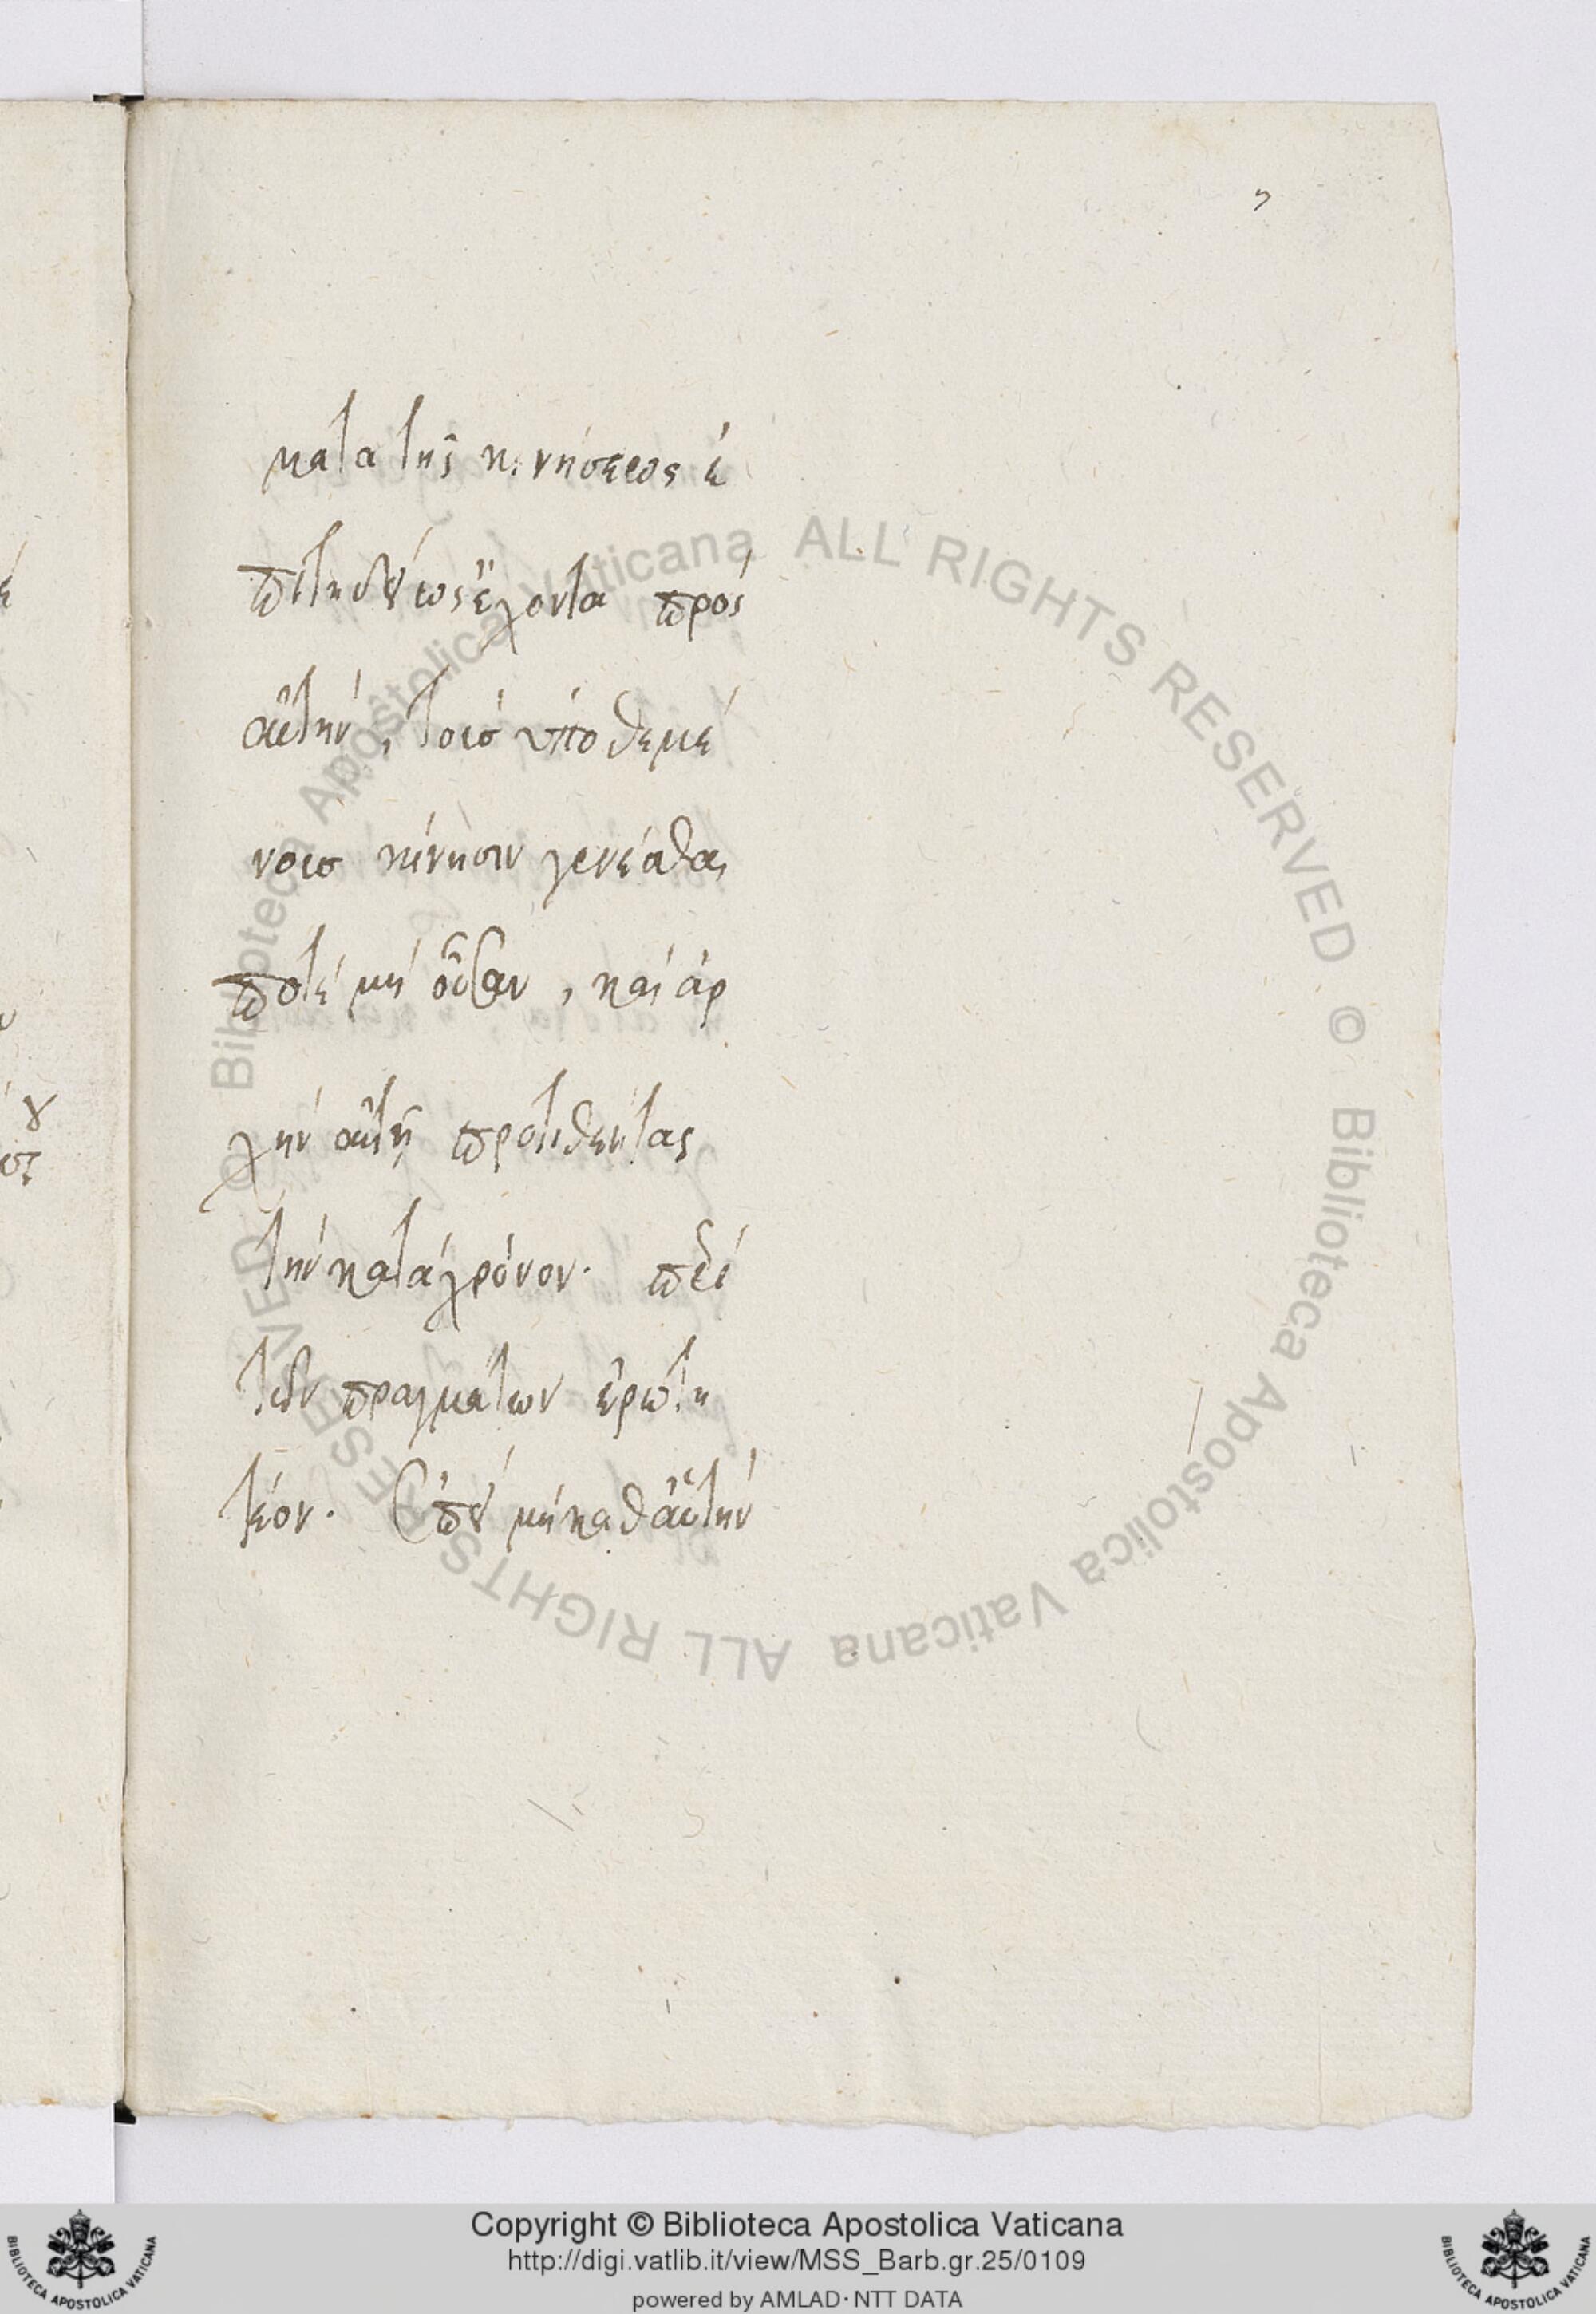 η
κατα τῆς κινήσεως ἐ
πιτηδείως ἔχοντα πρός
αὐτήν, τοῖσ ὑποθεμέ
νοισ κίνησιν γενέσθαι
ποτέ μή οὖσαν, καί ἀρ
χήν αὐτῇ προτιθέντας
τήν κατά χρόνον. περί
τῶν πραγμάτων ἐρωτη
τέον.
μή καθ αὑτήν
Biblioteca Apostolica Vaticana ALL RIGHTS RESERVED © Biblioteca Apostolica Vaticana ALL RIGHTS RESERVED ©
Copyright © Biblioteca Apostolica Vaticana
http://digi.vatlib.it/view/MSS_Barb.gr.25/0109
powered by AMLAD·NTT DATA
BIBLIOTECA APOSTOLICA VATICANA
BIBLIOTECA APOSTOLICA VATICANA